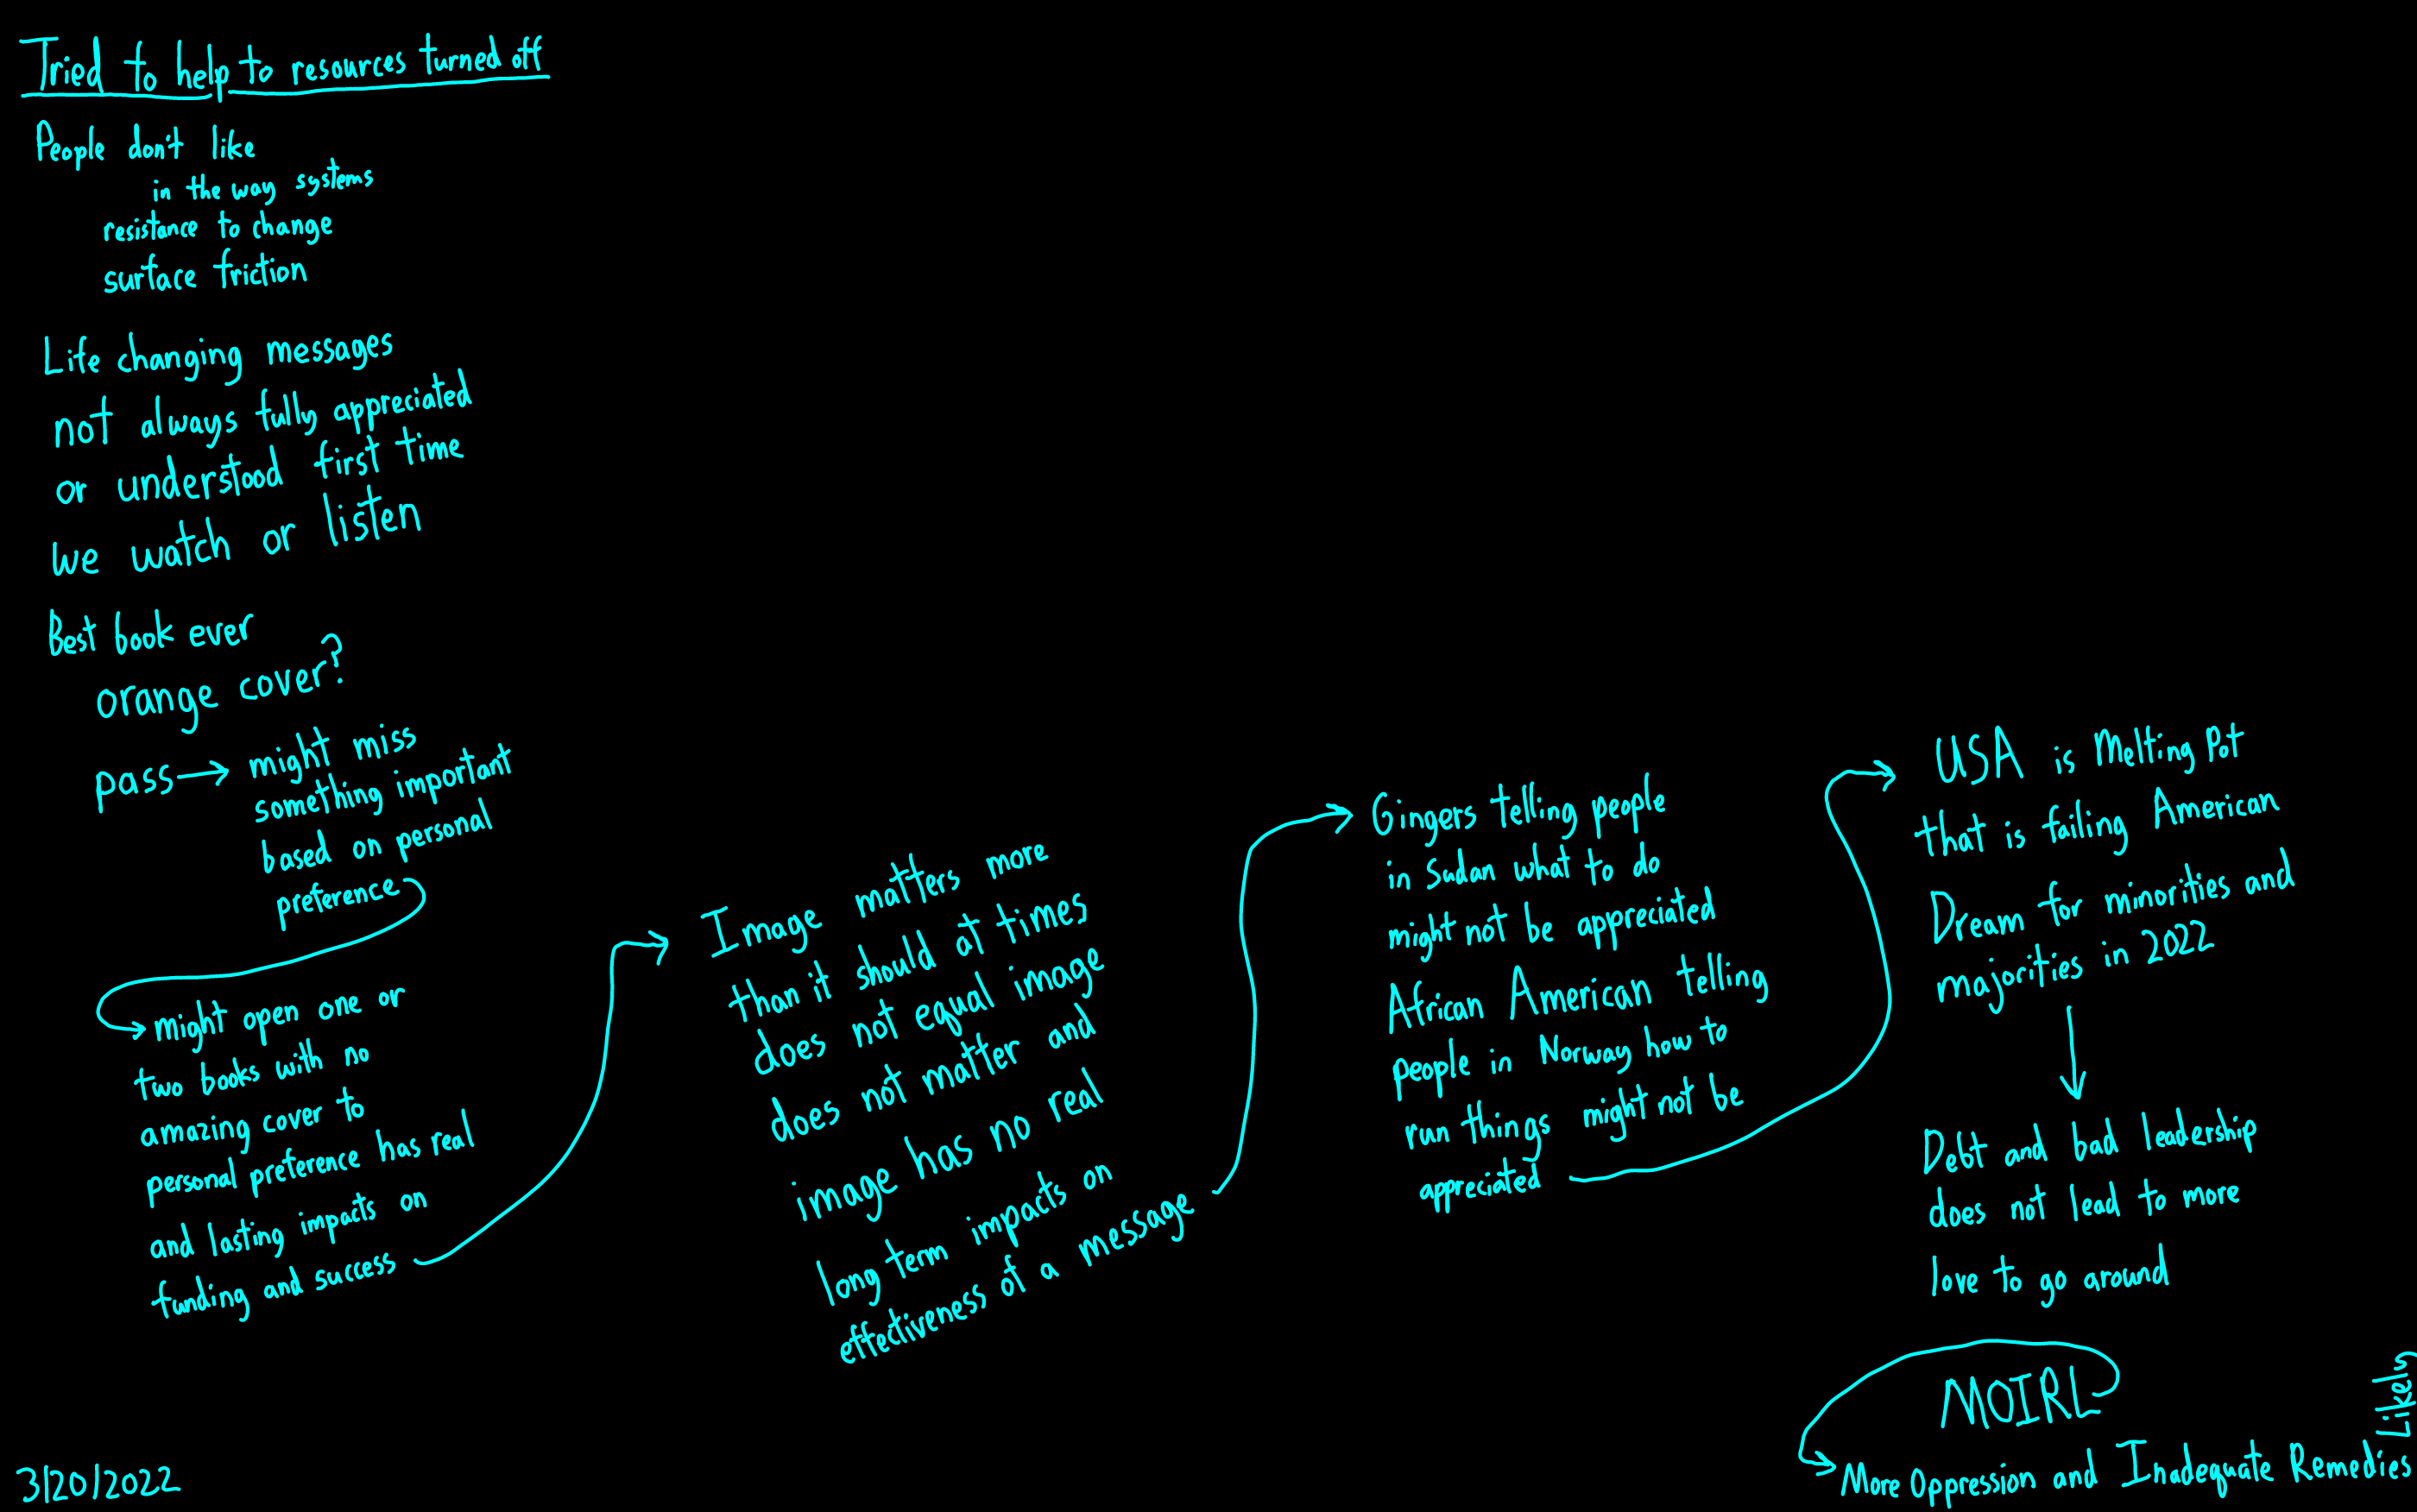 Tried to help to resources turned off
People don't like
in the way systems
resistance to change
surface friction
Life changing messages
not always fully appreciated
or understood first time
we watch or listen
Best book ever
orange cover?
pass → might miss
something important
based on personal
preference
might open one or
two books with no
amazing cover to
personal preference has real
and lasting impacts on
funding and success
Image matters more
than it should at times
does not equal image
does not matter and
image has no real
long term impacts on
effectiveness of a message
Gingers telling people
in Sudan what to do
might not be appreciated
African American telling
people in Norway how to
run things might not be
appreciated
USA is Melting Pot
that is failing American
Dream for minorities and
majorities in 2022
Debt and bad leadership
does not lead to more
love to go around
MOIRL
More Oppression and Inadequate Remedies
Likely
3/20/2022